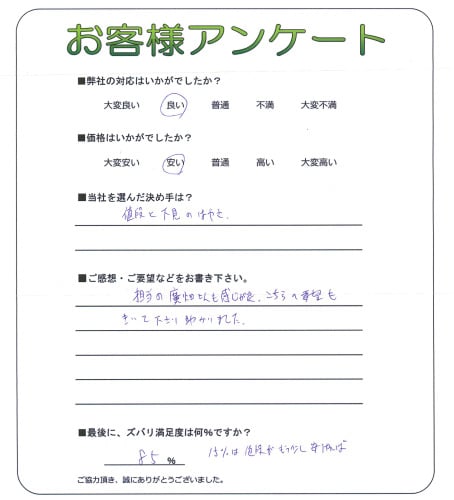 お客様アンケート
■弊社の対応はいかがでしたか？
大変良い 良い 普通 不満 大変不満
■価格はいかがでしたか？
大変安い 安い 普通 高い 大変高い
■当社を選んだ決め手は？
値段と下見のはやさ、
■ご感想・ご要望などをお書き下さい。
担当の廣畑さんも感じが良く、こちらの希望も
きいて下さり助かりました。
■最後に、ズバリ満足度は何%ですか？
85 % 15%は値段がもう少し安ければ
ご協力頂き、誠にありがとうございました。